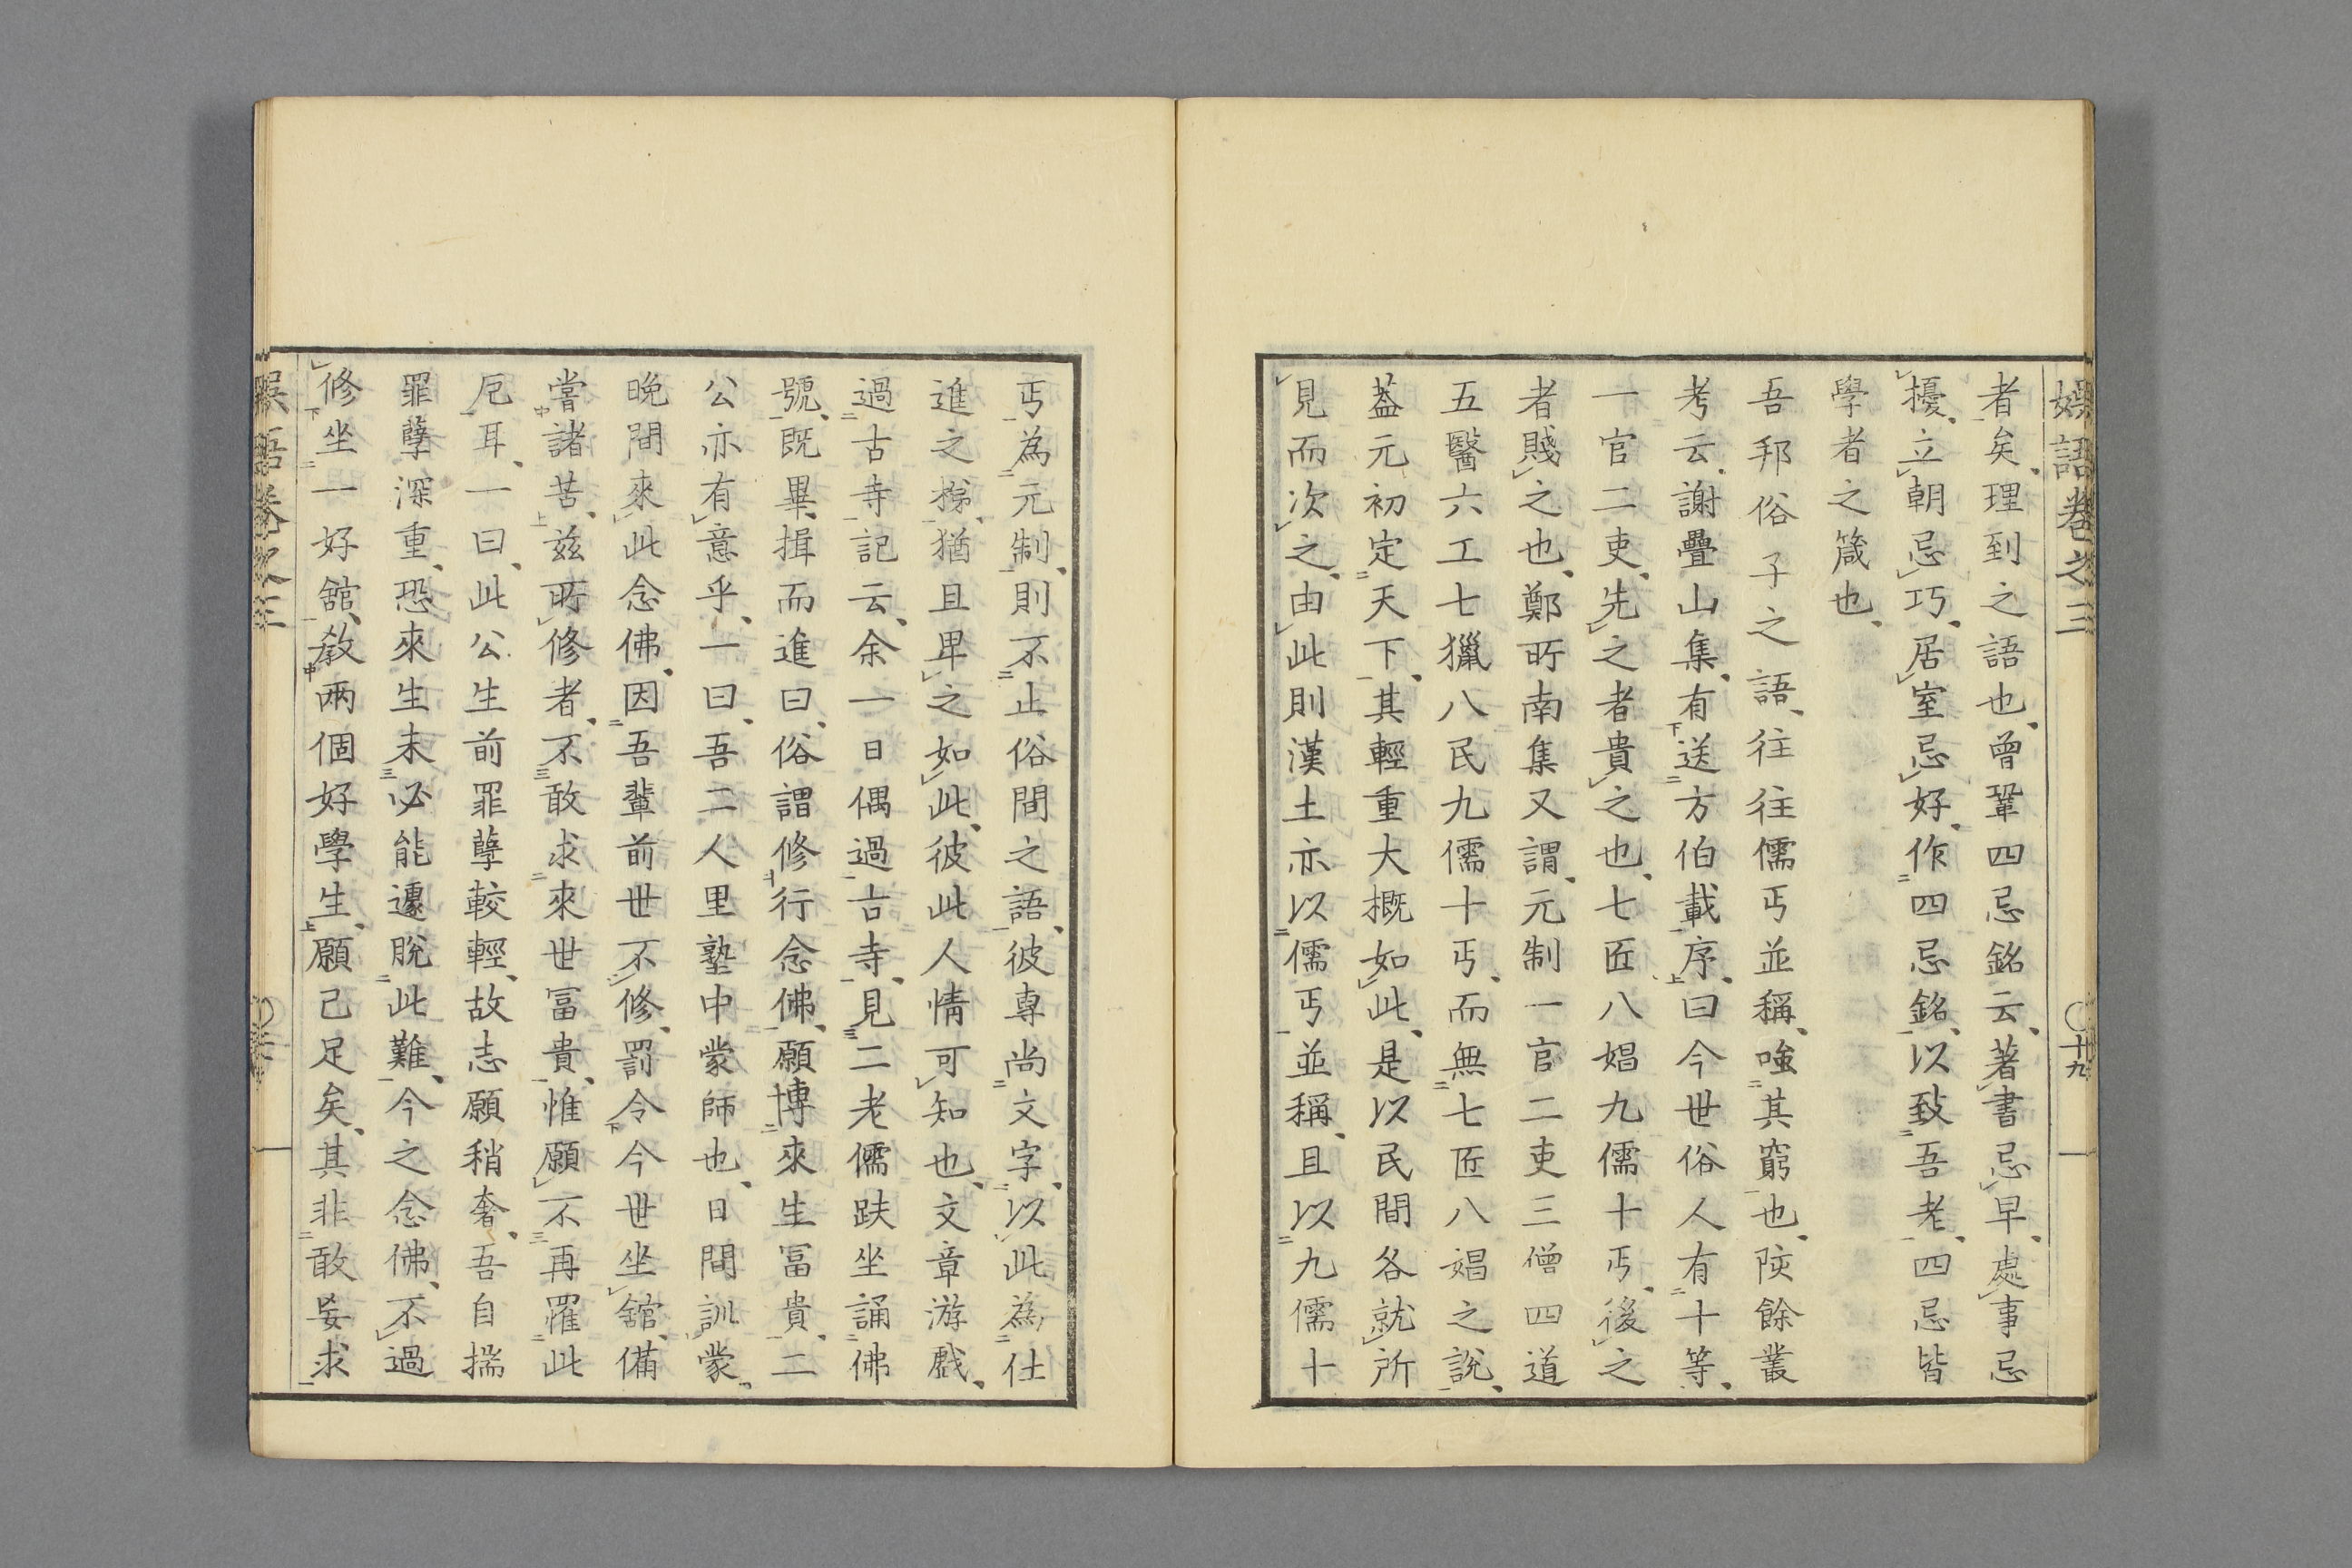 娯語卷之三 〇十九
者矣理到之語也曾鞏四忌銘云著書忌早處事忌
擾立朝忌巧居室忌好作四忌銘以致吾老四忌皆
學者之箴也
吾邦俗子之語往往儒丐並稱嗤其窮也陔餘叢
考云謝疊山集有送方伯載序曰今世俗人有十等
一官二吏先之者貴之也七匠八娼九儒十丐後之
者賤之也鄭所南集又謂元制一官二吏三僧四道
五醫六工七獵八民九儒十丐而無七匠八娼之說
葢元初定天下其輕重大概如此是以民間各就所
見而次之由此則漢土亦以儒丐並稱且以九儒十
丐為元制則不止俗間之語彼專尚文字以此為仕
進之梯猶且卑之如此彼此人情可知也文章游戲
過古寺記云余一日偶過古寺見二老儒趺坐誦佛
號既畢揖而進曰俗謂修行念佛願博來生冨貴二
公亦有意乎一曰吾二人里塾中蒙師也日間訓蒙
晚間來此念佛因吾輩前世不修罰令今世坐舘備
嘗諸苦茲所修者不敢求來世冨貴惟願不再罹此
厄耳一曰此公生前罪孽較輕故志願稍奢吾自揣
罪孽深重恐來生未必能遽脫此難今之念佛不過
修坐一好舘敎兩個好學生願已足矣其非敢妄求
娯語卷之三